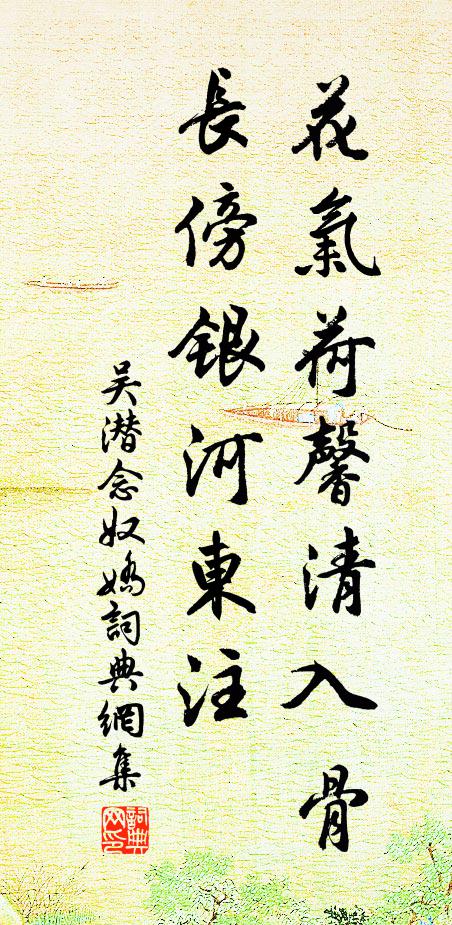 花氣荷馨清入骨
長傍銀河東注
吴潜念奴嬌詞典網集
詞典網印